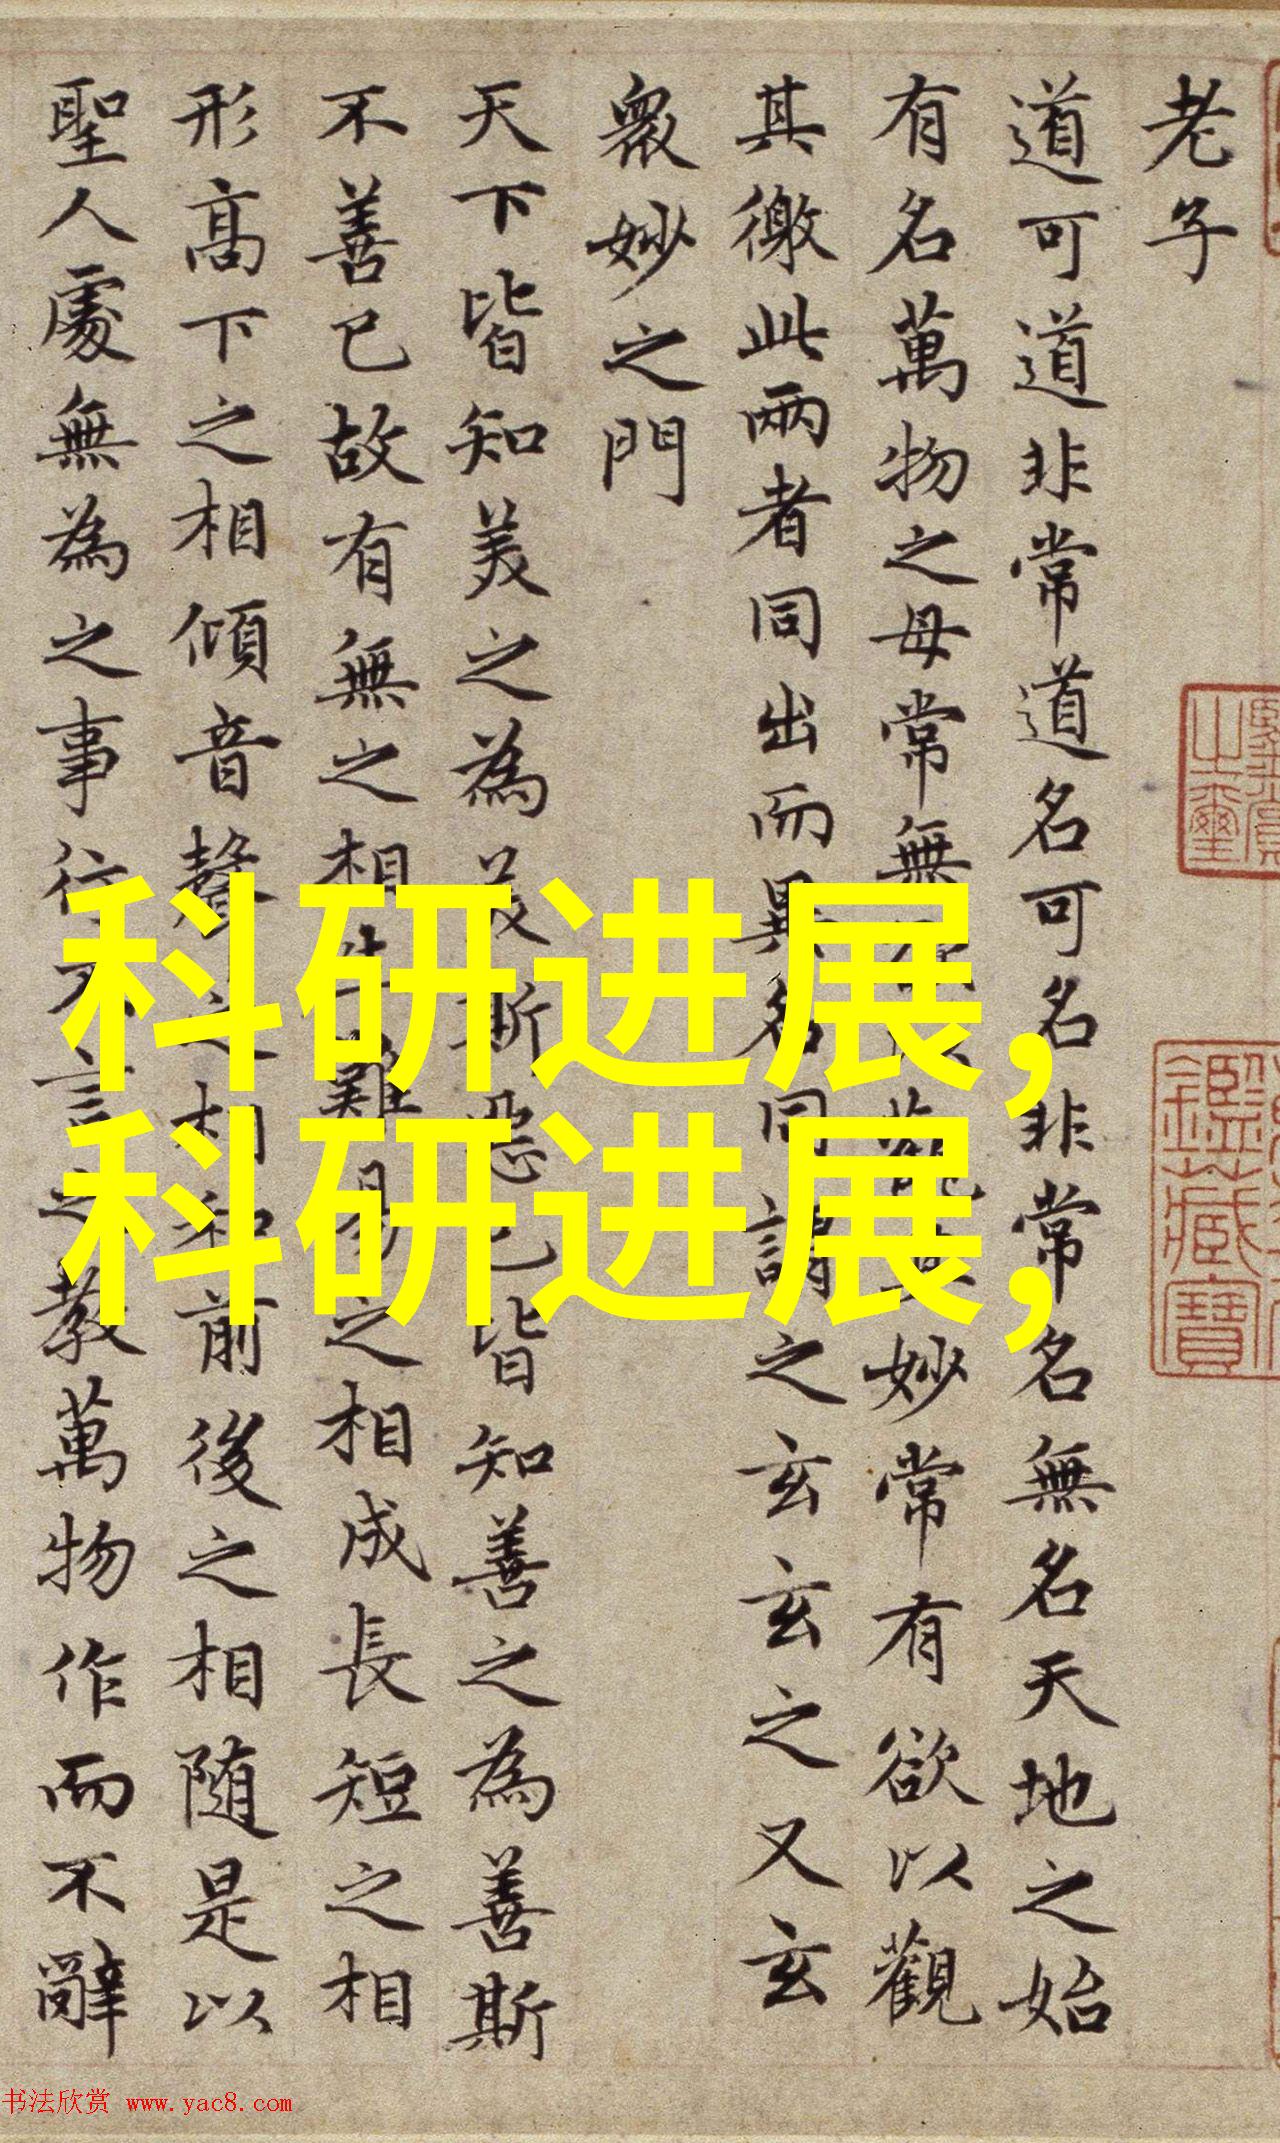 老子
道可道非常道名可名非常名無名天地之始
有名萬物之母常無妙常有欲以觀
其徼此兩者同出而異名同謂之玄玄之又玄
衆妙之門
天下皆知美之為美斯惡已皆知善之為善斯
不善已故有無之相生難易之相成長短之相
形高下之相傾音聲之相和前後之相随是以
聖人處無為之事行不言之教萬物作而不辭
科研进展,
科研进展,
之璽
鑑藏寶
书法欣赏 www.yac8.com